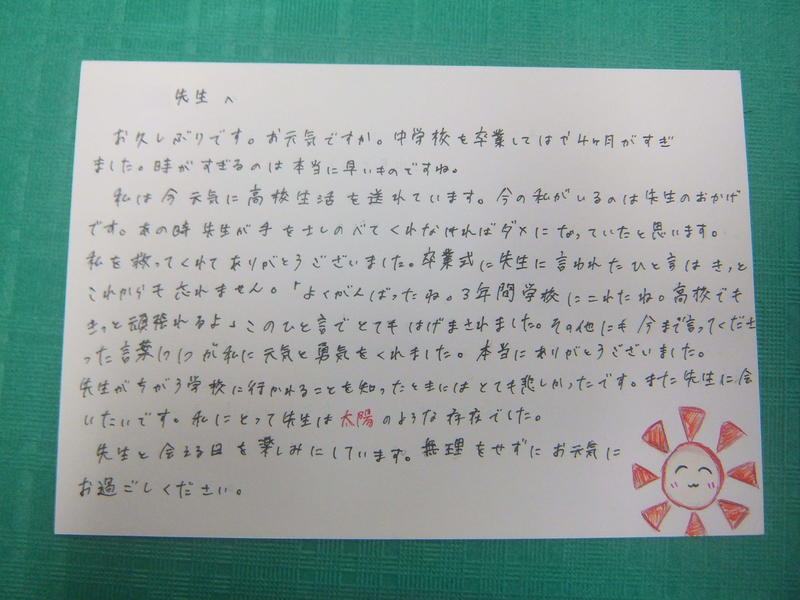 先生へ
お久しぶりです。お元気ですか。中学校を卒業してはや4ヶ月がすぎ
ました。時がすぎるのは本当に早いものですね。
私は今元気に高校生活を送れています。今の私がいるのは先生のおかげ
です。あの時先生が手をさしのべてくれなければダメになっていたと思います。
私を救ってくれてありがとうございました。卒業式に先生に言われたひと言はきっと
これからも忘れません。「よくがんばったね。3年間学校にこれたね。高校でも
きっと頑張れるよ」このひと言でとてもはげまされました。その他にも今まで言ってくださ
った言葉1つ1つが私に元気と勇気をくれました。本当にありがとうございました。
先生がちがう学校に行かれることを知ったときにはとても悲しかったです。また先生に会
いたいです。私にとって先生は太陽のような存在でした。
先生と会える日を楽しみにしています。無理をせずにお元気に
お過ごしください。